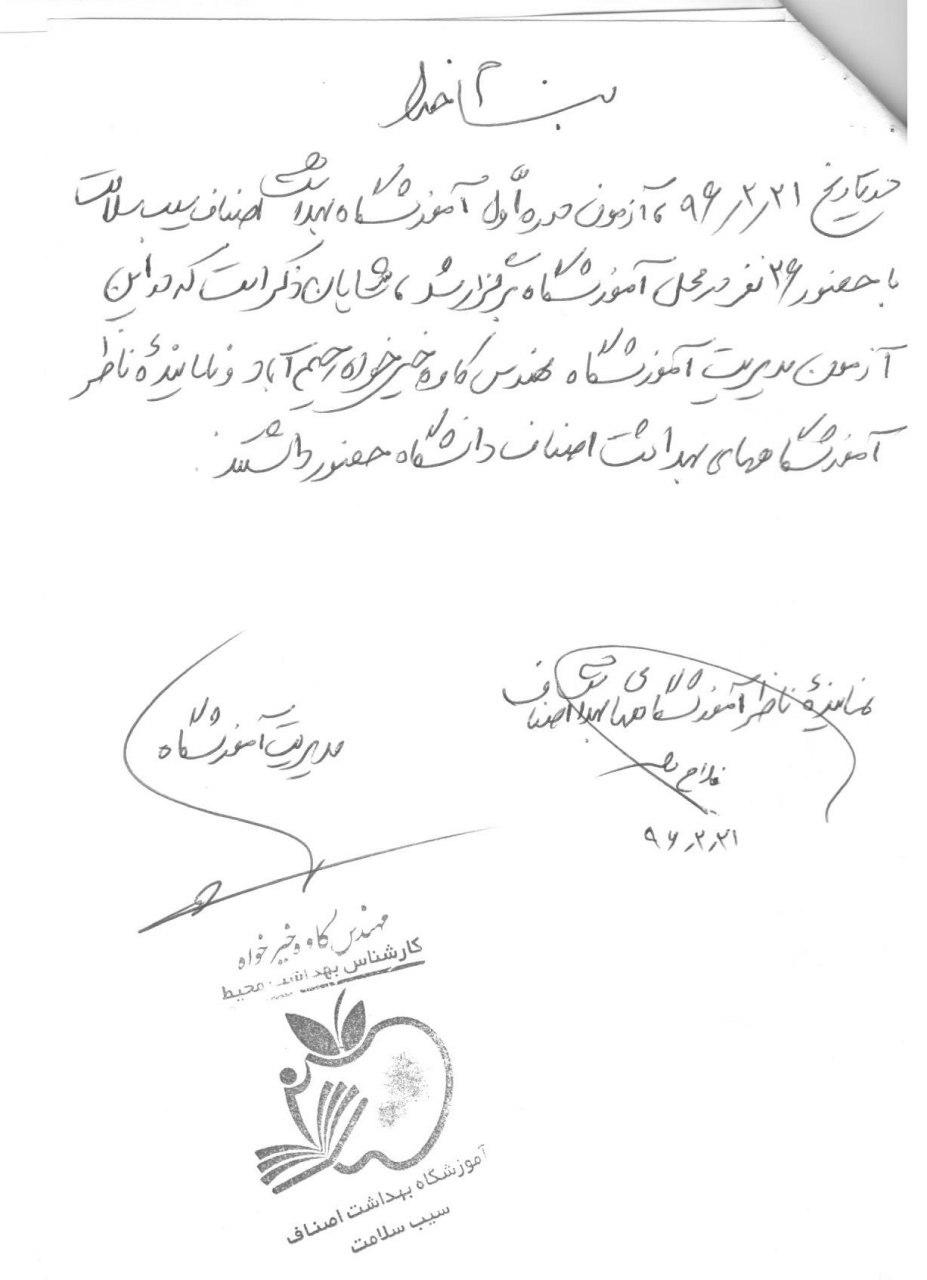 بنام خدا
در تاریخ ۹۶٫۲٫۲۱ ، آزمون دوره اوّل آموزشگاه بهداشت اصناف سیب سلامت
با حضور ۲۶ نفر در محل آموزشگاه برگزار شد ، شایان ذکر است که در این
آزمون مدیریت آموزشگاه مهندس کاوه خیرخواه رحیم آباد و نمایندهٔ ناظر
آموزشگاههای بهداشت اصناف دانشگاه حضور داشتند .
نمایندهٔ ناظر آموزشگاههای بهداشت اصناف
۹۶٫۲٫۲۱
مدیریت آموزشگاه
مهندس کاوه خیرخواه
کارشناس بهداشت محیط
آموزشگاه بهداشت اصناف
سیب سلامت